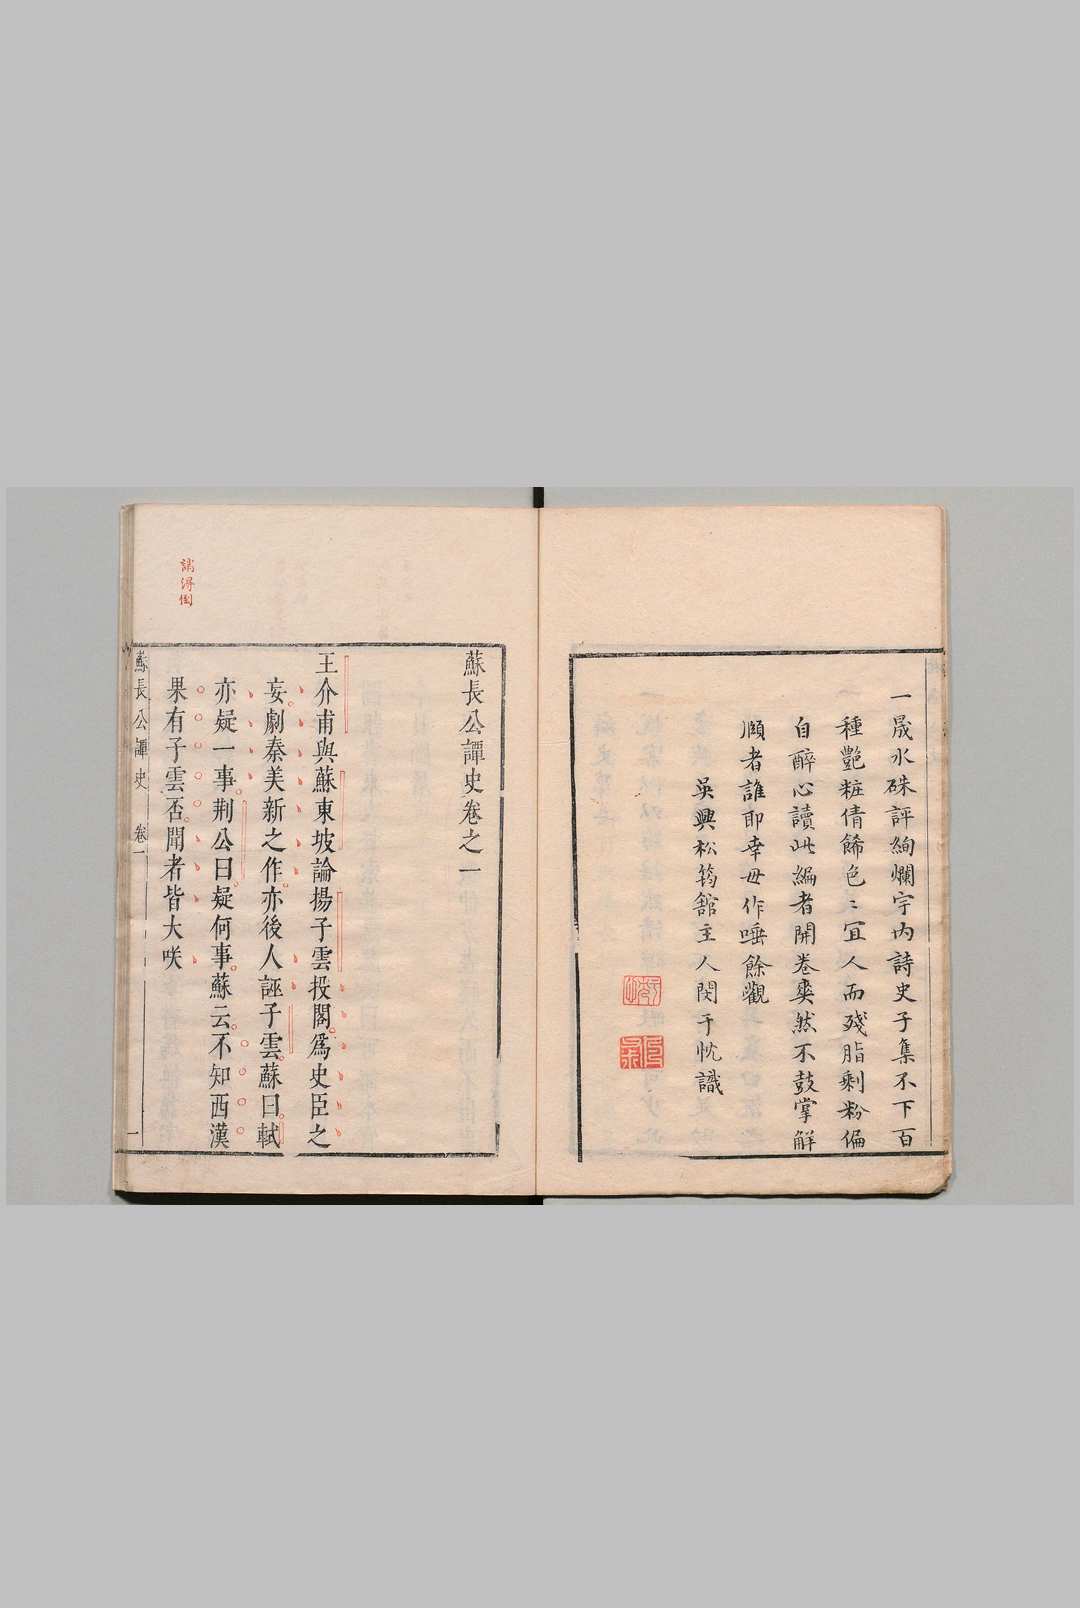 一晟水硃評絢爛宇內詩史子集不下百
種艷粧倩餙色〻冝人而殘脂剩粉偏
自醉心讀此編者開卷爽然不鼓掌解
頤者誰耶幸毋作唾餘觀
吳興松筠館主人閔于忱識
蘇長公譚史卷之一
王介甫與蘇東坡論揚子雲投閣爲史臣之
妄劇秦美新之作亦後人誣子雲蘇曰軾
亦疑一事荆公曰疑何事蘇云不知西漢
果有子雲否聞者皆大咲
謔得倒
蘇長公譚史 卷一 一